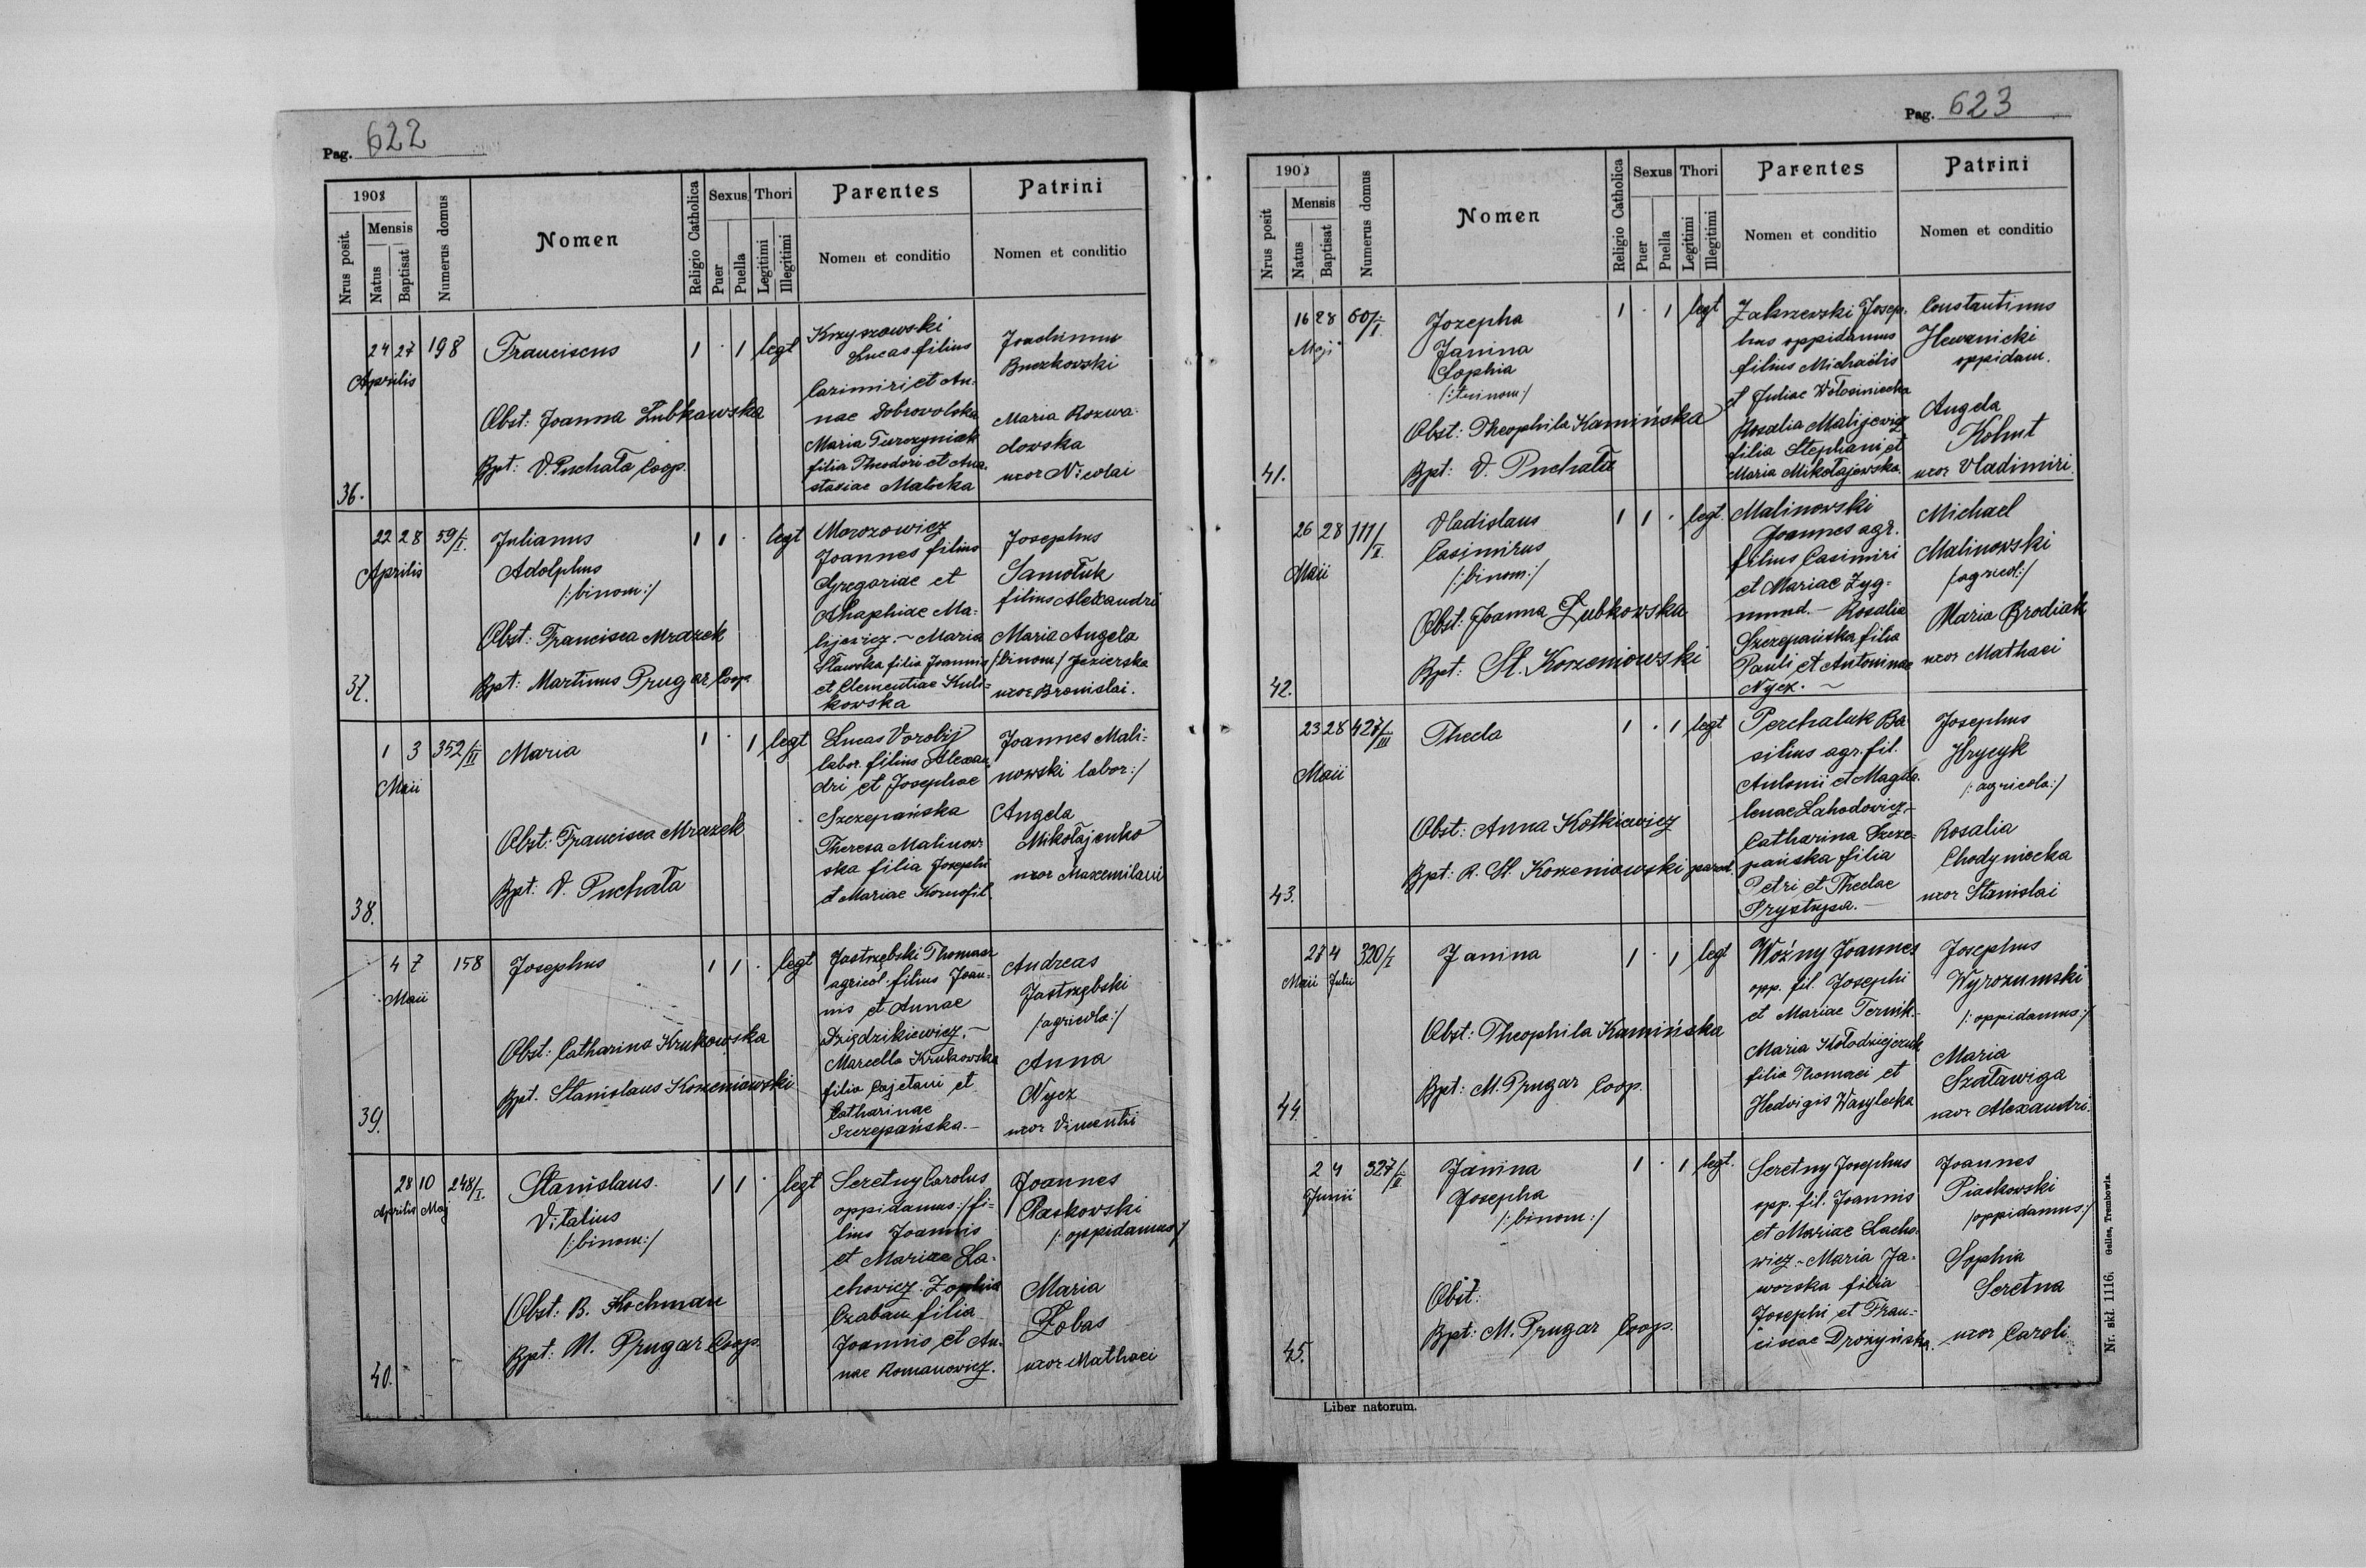 Pag. 622
1908
Nrus posit.
Mensis
Natus
Baptisat
Numerus domus
Nomen
Religio Catholica
Sexus
Puer
Puella
Thori
Legitimi
Illegitimi
Parentes
Nomen et conditio
Patrini
Nomen et conditio
36.
24 27 198
Aprilis
Franciscus
1 · 1 legt
Obst: Joanna Łubkowska
Bpt: V. Puchała Coop.
Krzyszowski
Lucas filius
Casimiri et An-
nae Dobrovolska
Maria Turczyniak
filia Theodori et Ana-
stasiae Małocka
Joachimus
Buczkowski
Maria Rozwa-
dowska
uxor Nicolai
37.
22 28 59/I.
Aprilis
Julianus
Adolphus
/:binom:/
1 1 · legt
Obst: Francisca Mrazek
Bpt: Martinus Prugar Coop.
Morozowicz
Joannes filius
Gregoriae et
Ahaphiae Ma-
lijewicz. ~ Maria
Sławska filia Joannis
et Clementiae Kuli-
kowska
Josephus
Samoluk
filius Alexandri
Maria Angela
/:binom:/ Jezierska
uxor Bronislai.
38.
1 3 352/II
Maii
Maria
1 · 1 legt
Obst: Francisca Mrazek
Bpt: V. Puchała
Lucas Vorobij
labor. filius Alexan-
dri et Josephae
Szczepańska
Theresa Malinow-
ska filia Josephi
et Mariae Kornofil.
Joannes Mali-
nowski labor:/
Angela
Mikołajenko
uxor Maxemiliani
39.
4 7 158
Maii
Josephus
1 1 · legt
Obst: Catharina Krukowska
Bpt. Stanislaus Korzeniowski
Jastrzębski Thomasz
agricol. filius Joan-
nis et Annae
Dzigdzikiewicz. ~
Marcella Krukowska
filia Cajetani et
Catharinae
Szczepańska. -
Andreas
Jastrzębski
/agricola:/
Anna
Nycz
uxor Vincentii
40.
28 10 248/I.
Aprilis Maj
Stanislaus.
Vitalius
/:binom:/
1 1 · legt
Obst: B. Hochman
Bpt: M. Prugar Coop.
Seretny Carolus
oppidamus:/ fi-
lius Joannis
et Mariae La-
chowicz. Zophia
Czaban filia
Joannis et An-
nae Romanowicz.
Joannes
Piaskowski
/:oppidamus:/
Maria
Łobas
uxor Mathaei
Pag. 623
1908
Nrus posit
Mensis
Natus
Baptisat
Numerus domus
Nomen
Religio Catholica
Sexus
Puer
Puella
Thori
Legitimi
Illegitimi
Parentes
Nomen et conditio
Patrini
Nomen et conditio
41.
16 28 60/I.
Maji
Jozepha
Janina
Sophia
/:trinom:/
1 · 1 legt
Obst: Theophila Kamińska
Bpt: V. Puchała
Zakrzewski Josep-
hus oppidamus
filius Michaëlis
et Juliae Wołosiniecka
Rosalia Malijewicz
filia Stephani et
Maria Mikołajewska.
Constantinus
oppidam.
Angela
Kohut
uxor Vladimiri.
42.
26 28 111/I
Maii
Vladislaus
Casimirus
/:binom:/
1 1 · legt.
Obst: Joanna Łubkowska
Bpt: St. Korzeniowski
Malinowski
Joannes agr.
filius Casimiri
et Mariae Zyg-
mund. - Rosalia
Szczepańska filia
Pauli et Antoninae
Nycz. ~
Michael
Malinowski
/agricol:/
Maria Brodiak
uxor Mathaei
43.
23 28 427/III
Maii
Thecla
1 · 1 legt
Obst: Anna Kotkiewicz
Bpt: R. St. Korzeniowski paroch.
Perchaluk Ba-
silius agr. fil.
Antonii et Magda-
lenae Lahodowicz. -
Catharina Szcze-
pańska filia
Petri et Theclae
Prystupa. -
Josephus
Hrycyk
/:agricola:/
Rosalia
Chodyniecka
uxor Stanislai
44.
27 4 320/I
Maii Julii
Janina
1 · 1 legt
Obst: Theophila Kamińska
Bpt: M. Prugar Coop.
Woźny Joannes
opp. fil. Josephi
et Mariae Ternik -
Maria Kołodziejczuk
filia Thomaei et
Hedvigis Wasylecka
Josephus
Wyrozumski
/:oppidamus:/
Maria
Szaławiga
uxor Alexandri.
45.
2 4 327/II
Junii
Janina
Josepha
/:binom:/
1 · 1 legt.
Obst:
Bpt: M. Prugar Coop.
Seretny Josephus
opp. fil. Joannis
et Mariae Lacho-
wicz - Maria Ja-
worska filia
Josephi et Fran-
ciscae Drożyńska.
Joannes
Piaskowski
/oppidamus:/
Sophia
Seretna
uxor Caroli
Liber natorum.
Nr. skł. 1116. Gelles, Trembowla.